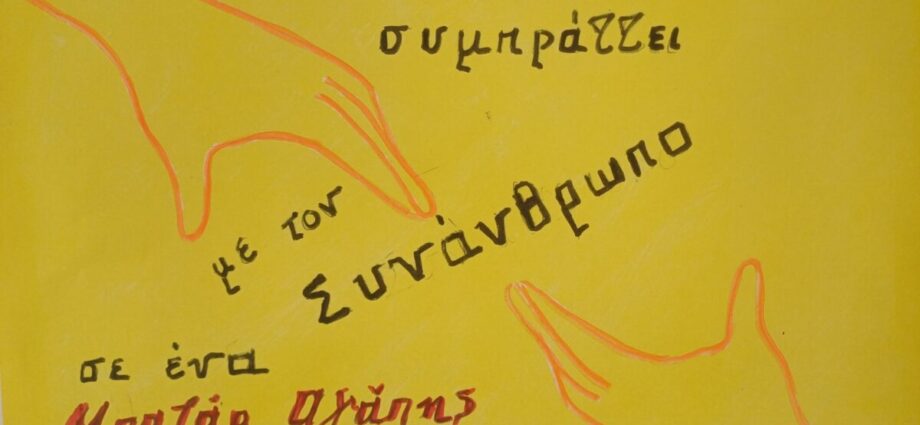 συμπράττει
με τον
Συνάνθρωπο
σε ένα
Μπαζάρ Αγάπης